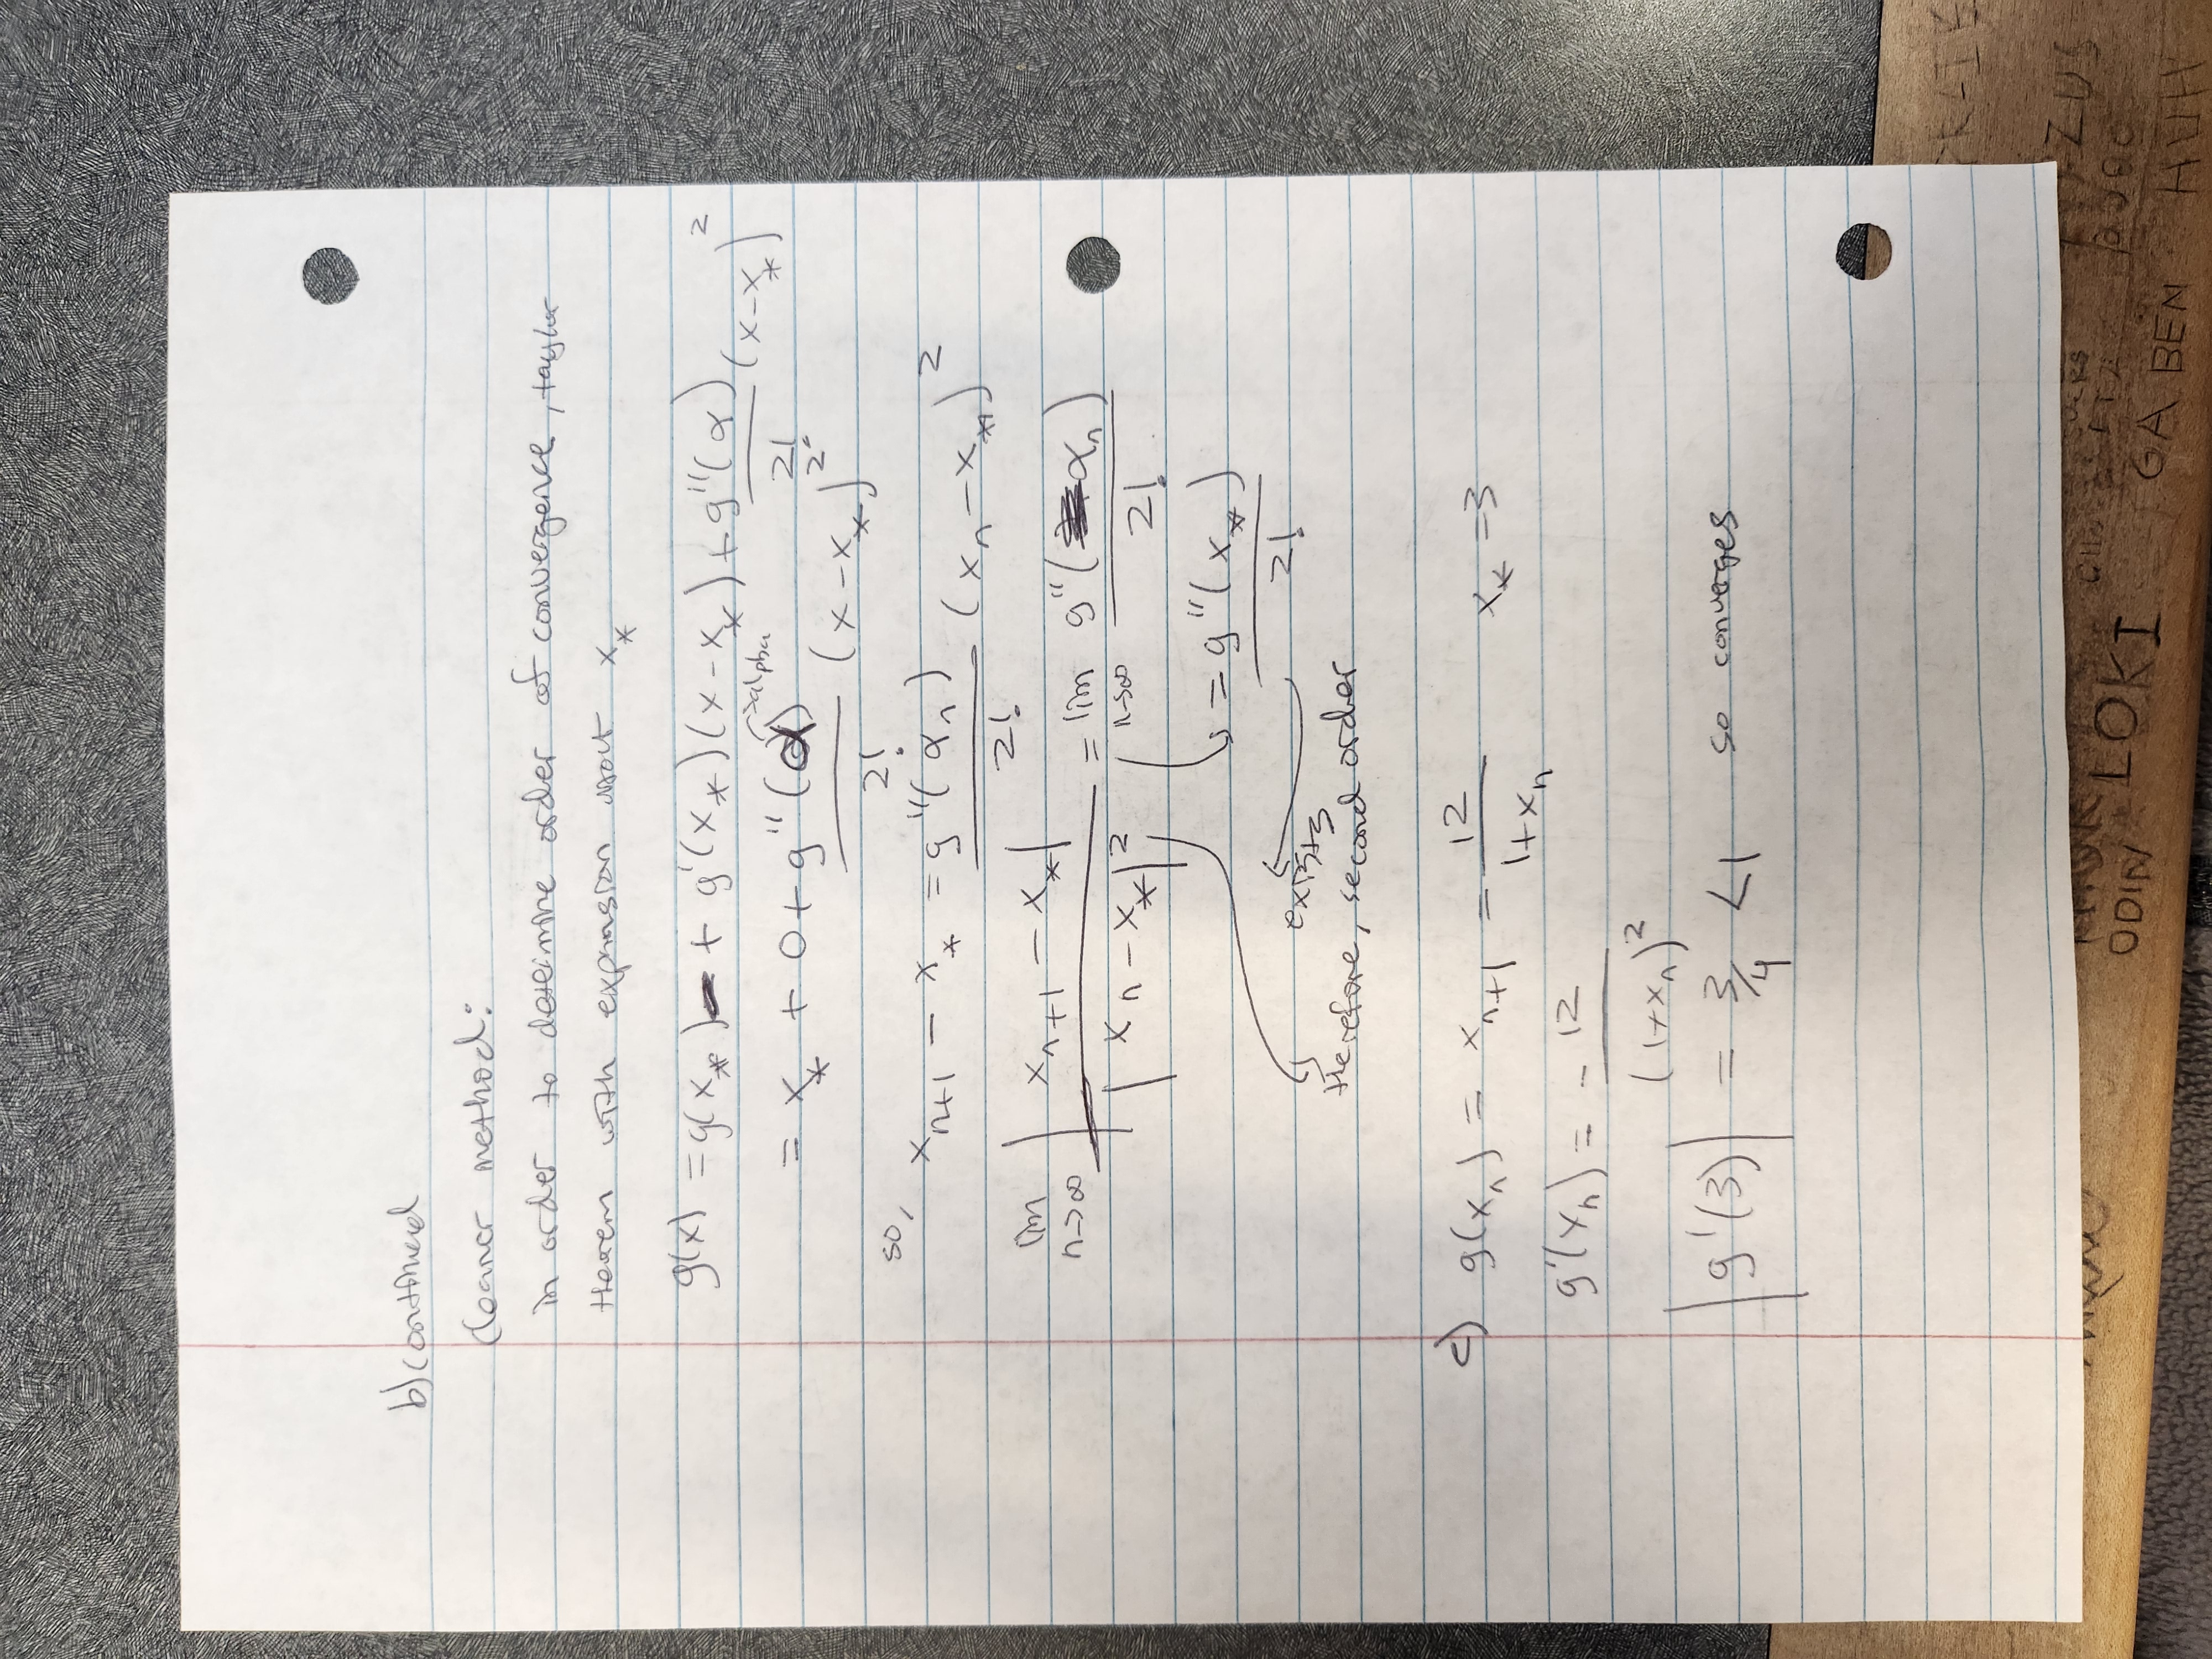 b) continued
Cleaner method:
in order to determine order of convergence, taylor
theorem with expansion about x_*
g(x) = g(x_*) + g'(x_*)(x-x_*) + g''(α)/2! (x-x_*)^2
= x_* + 0 + g''(α)/2! (x-x_*)^2
→alpha
so, x_{n+1} - x_* = g''(α_n)/2! (x_n - x_*)^2
lim n→∞ |x_{n+1} - x_*| / |x_n - x_*|^2 = lim n→∞ g''(α_n)/2!
= g''(x_*)/2!
exists
therefore, second order
c) g(x_n) = x_{n+1} = 12/(1+x_n) x_* = 3
g'(x_n) = - 12/(1+x_n)^2
|g'(3)| = 3/4 < 1 so converges
ODIN LOKI
GABEN HUH